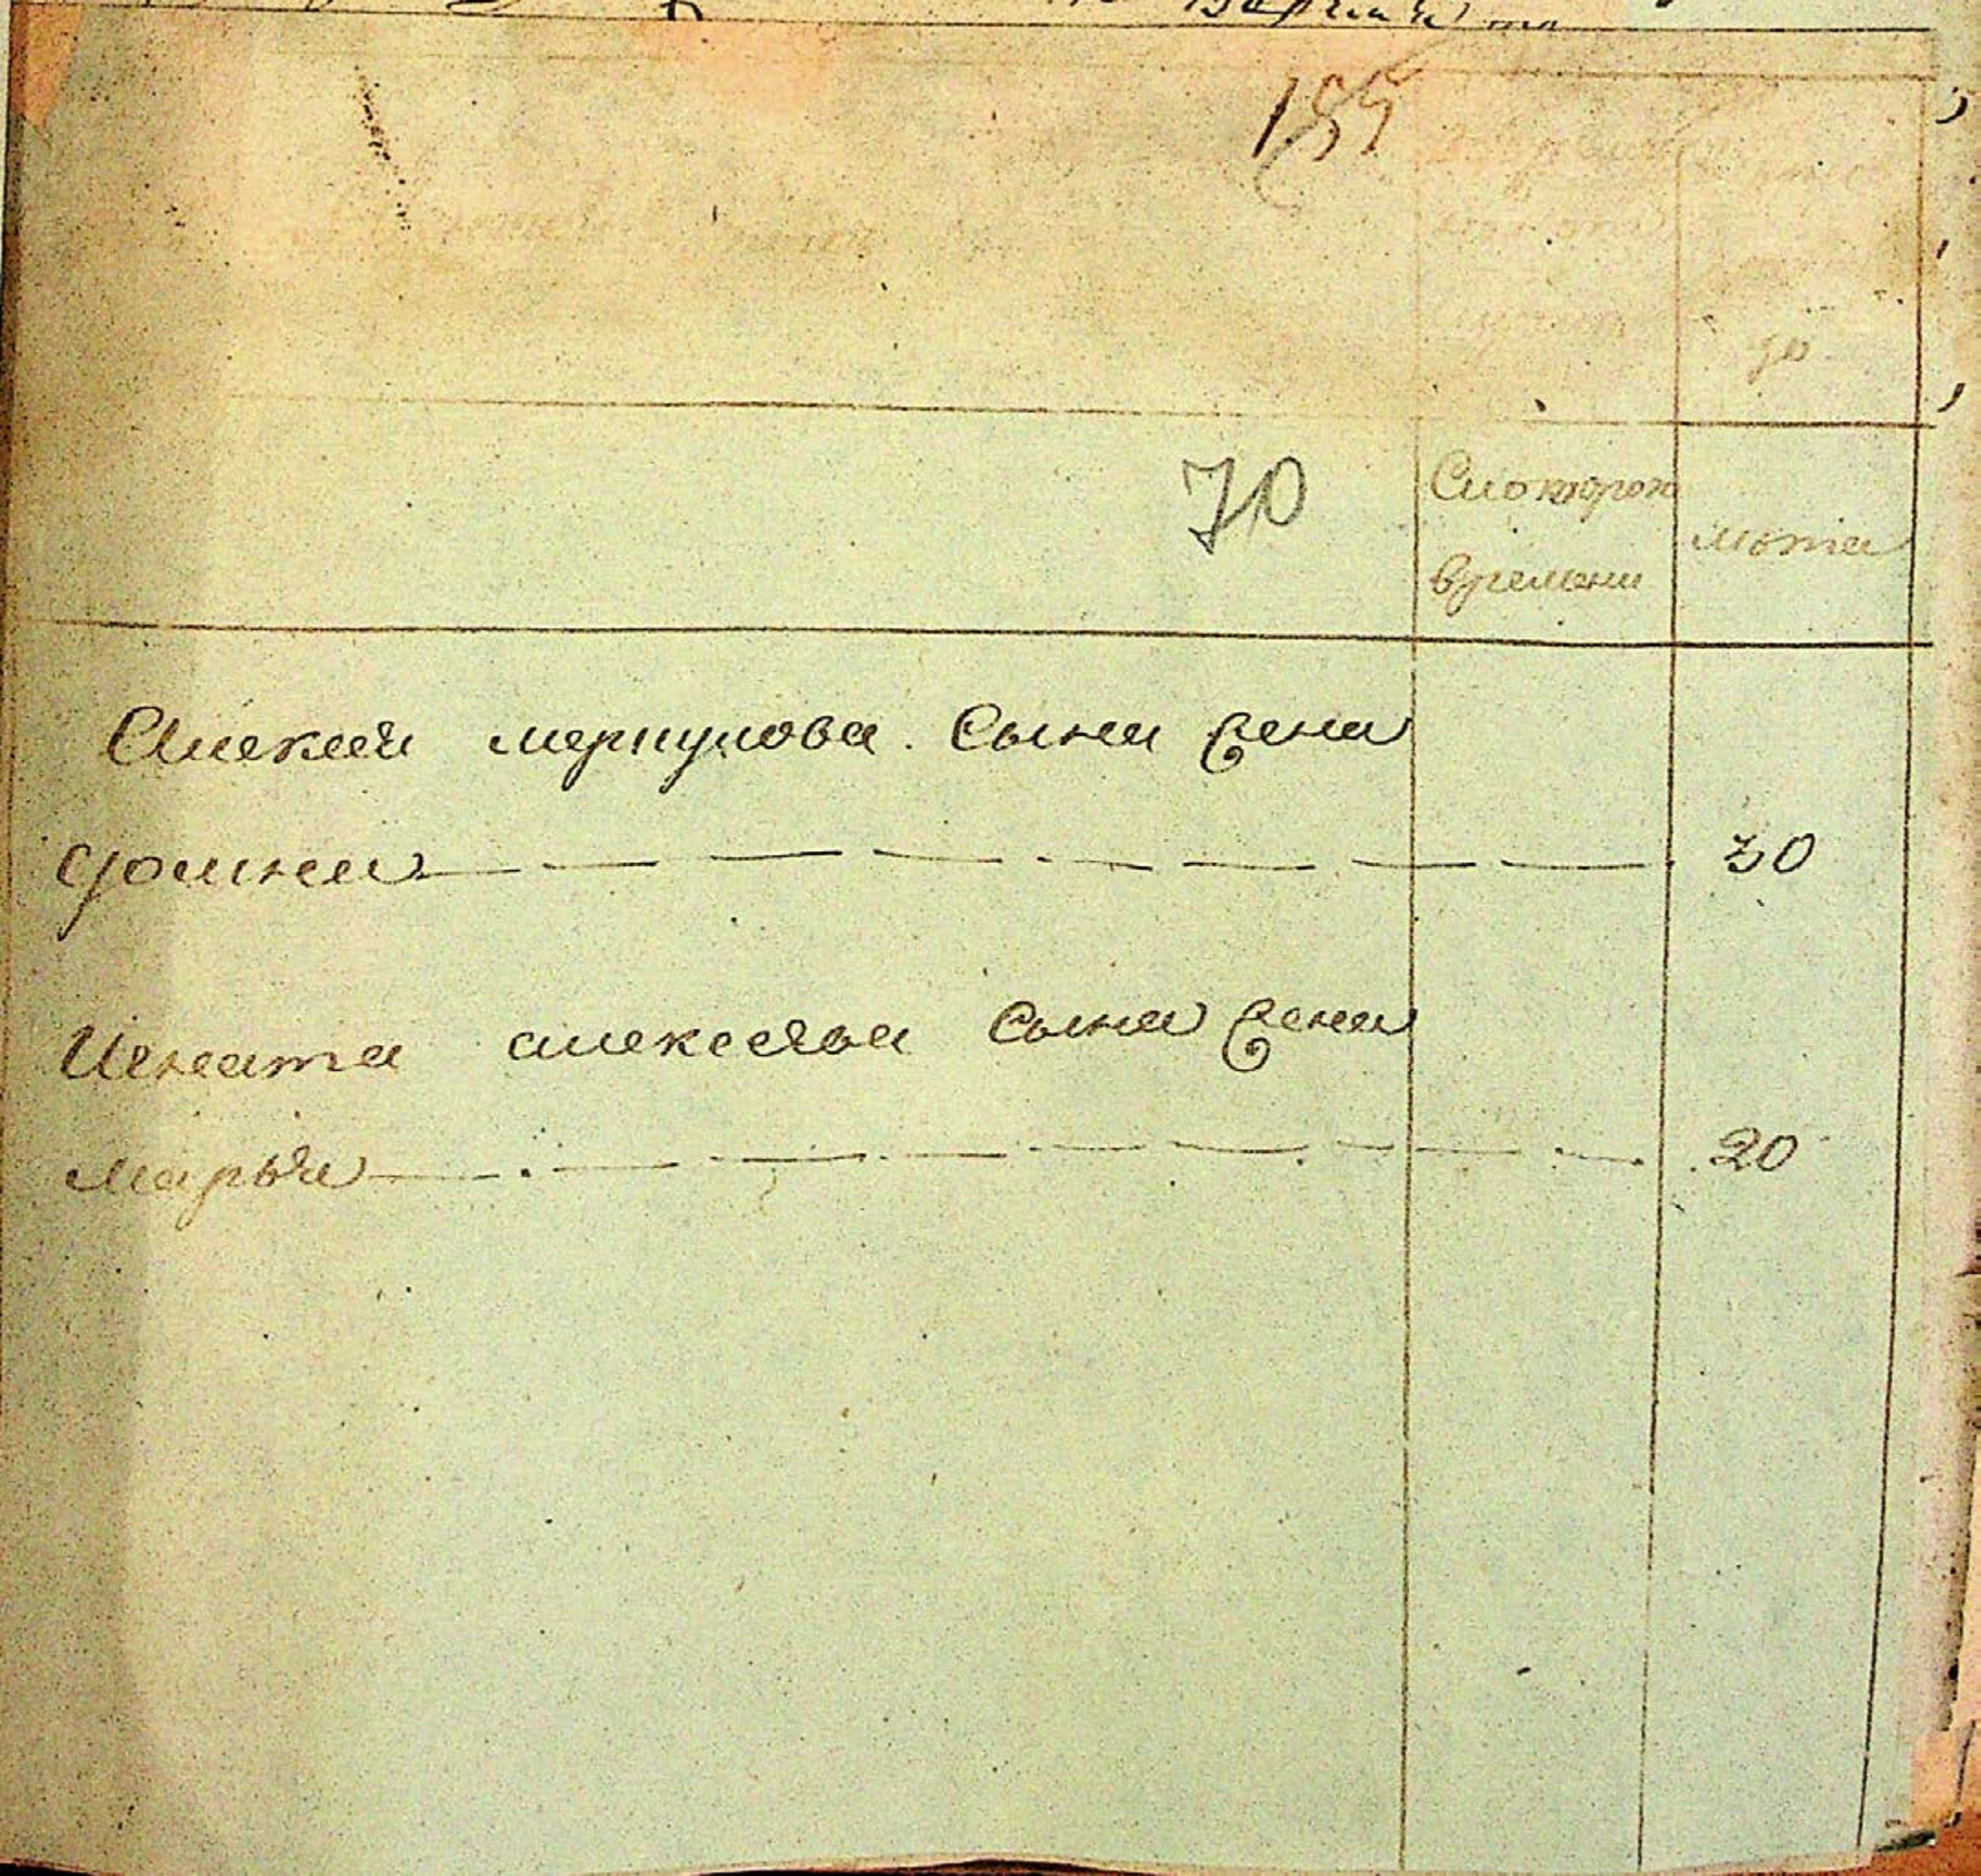 155
70
Скоторого
времени
лета
Алексея меркулова Сына жена
домна 30
Игната алексеева Сына жена
марья 20